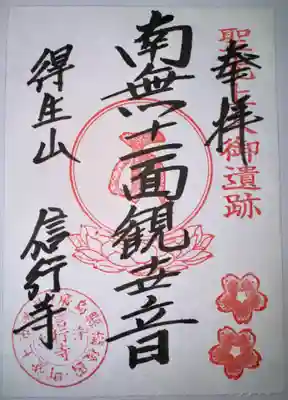 奉拝
御遺跡
南無十一面観世音
得生山　信行寺